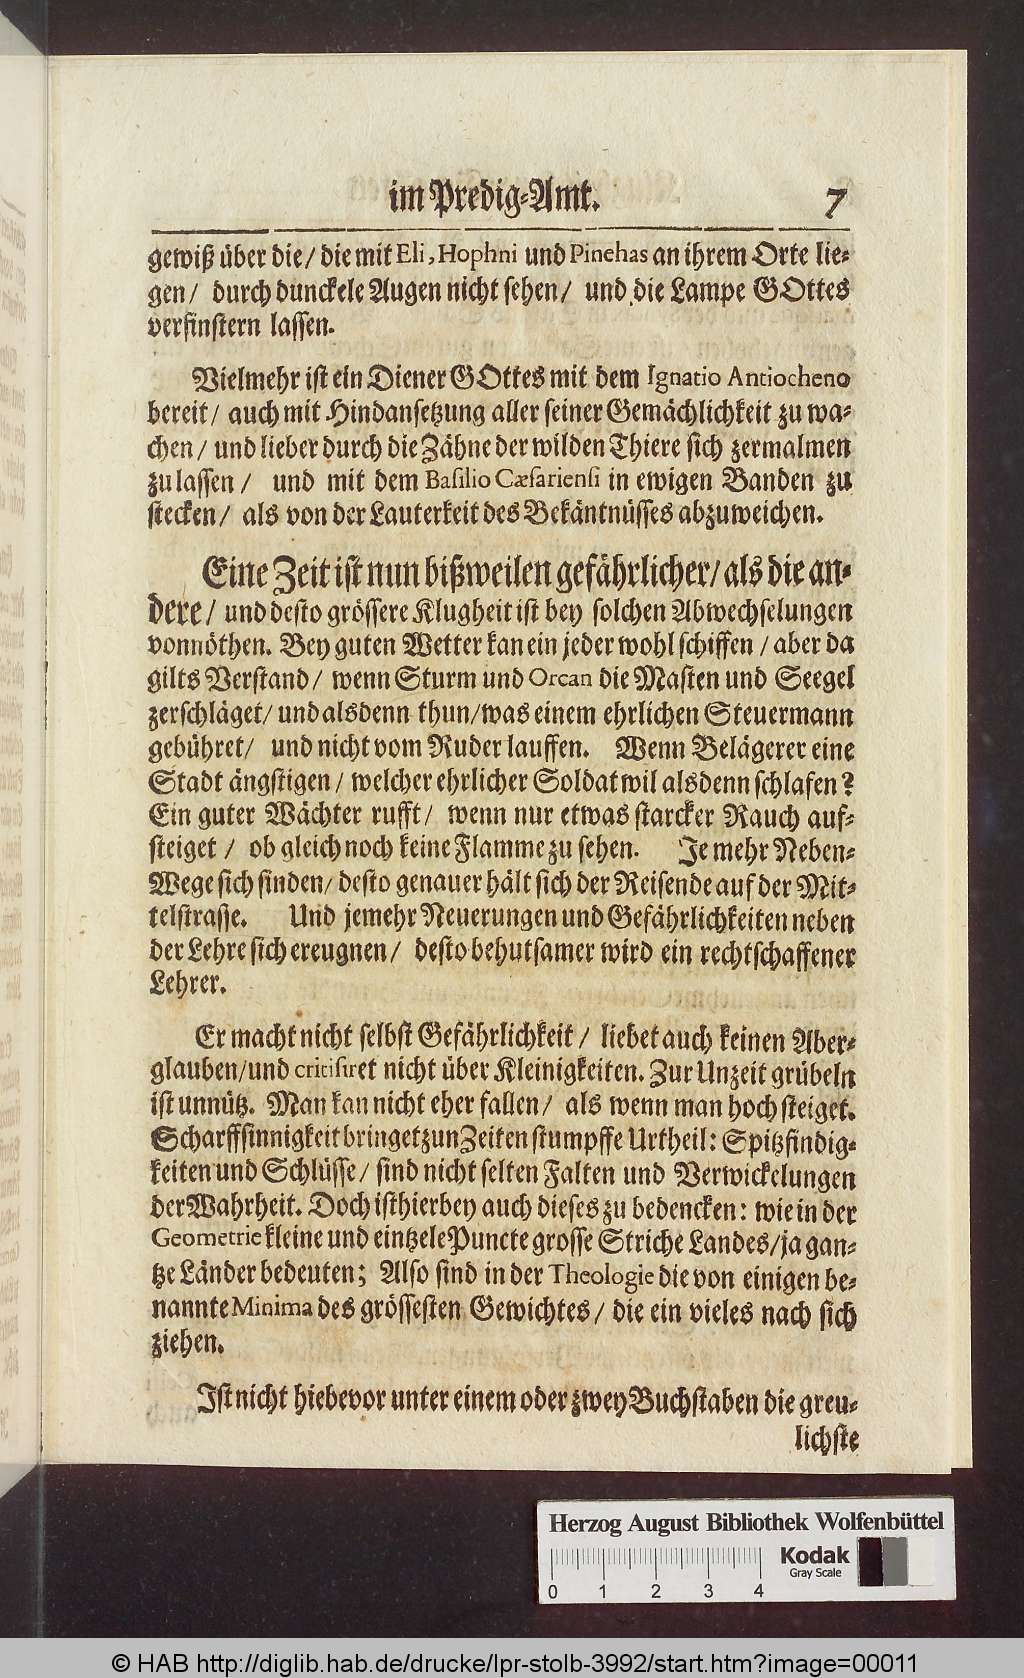 im Predig-Amt. 7
gewiß über die/ die mit Eli, Hophni und Pinehas an ihrem Orte lie-
gen/ durch dunckele Augen nicht sehen/ und die Lampe GOttes
verfinstern lassen.
Vielmehr ist ein Diener GOttes mit dem Ignatio Antiocheno
bereit/ auch mit Hindansetzung aller seiner Gemächlichkeit zu wa-
chen/ und lieber durch die Zähne der wilden Thiere sich zermalmen
zu lassen/ und mit dem Basilio Cæsariensi in ewigen Banden zu
stecken/ als von der Lauterkeit des Bekäntnüsses abzuweichen.
Eine Zeit ist nun bißweilen gefährlicher/ als die an-
dere/ und desto grössere Klugheit ist bey solchen Abwechselungen
vonnöthen. Bey guten Wetter kan ein jeder wohl schiffen/ aber da
gilts Verstand/ wenn Sturm und Orcan die Masten und Seegel
zerschläget/ und alsdenn thun/ was einem ehrlichen Steuermann
gebühret/ und nicht vom Ruder lauffen. Wenn Belägerer eine
Stadt ängstigen/ welcher ehrlicher Soldat wil alsdenn schlafen?
Ein guter Wächter rufft/ wenn nur etwas starcker Rauch auf-
steiget/ ob gleich noch keine Flamme zu sehen. Je mehr Neben-
Wege sich finden/ desto genauer hält sich der Reisende auf der Mit-
telstrasse. Und jemehr Neuerungen und Gefährlichkeiten neben
der Lehre sich ereugnen/ desto behutsamer wird ein rechtschaffener
Lehrer.
Er macht nicht selbst Gefährlichkeit/ liebet auch keinen Aber-
glauben/ und critisiret nicht über Kleinigkeiten. Zur Unzeit grübeln
ist unnütz. Man kan nicht eher fallen/ als wenn man hoch steiget.
Scharffsinnigkeit bringet zun Zeiten stumpffe Urtheil: Spitzfindig-
keiten und Schlüsse/ sind nicht selten Falten und Verwickelungen
der Wahrheit. Doch ist hierbey auch dieses zu bedencken: wie in der
Geometrie kleine und eintzele Puncte grosse Striche Landes/ ja gan-
tze Länder bedeuten; Also sind in der Theologie die von einigen be-
nannte Minima des grössesten Gewichtes/ die ein vieles nach sich
ziehen.
Ist nicht hiebevor unter einem oder zwey Buchstaben die greu-
lichste
Herzog August Bibliothek Wolfenbüttel
Kodak
Gray Scale
0 1 2 3 4
© HAB http://diglib.hab.de/drucke/lpr-stolb-3992/start.htm?image=00011